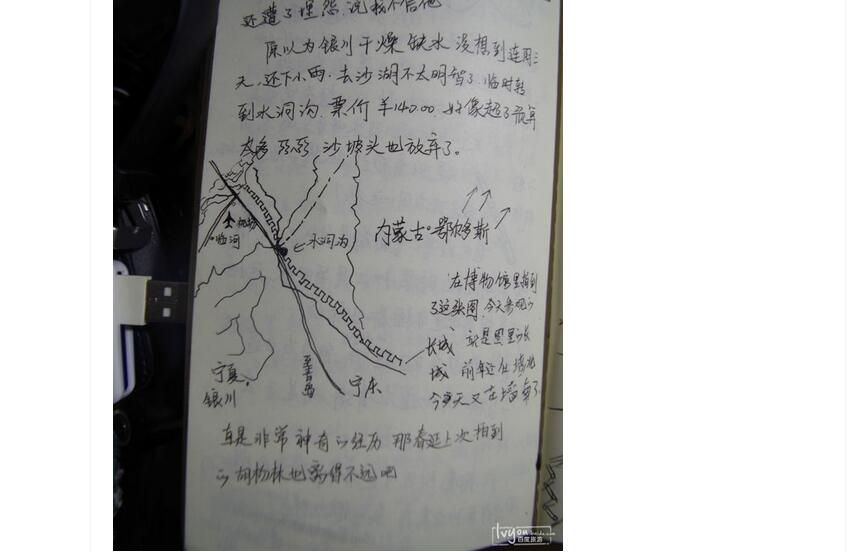 还遭了埋怨.说我不信他
原以为银川干燥缺水 没想到连雨三
天,还下小雨.去沙湖不太明智了.临时转
到水洞沟.票价 ¥140.00 好像超了预算
太多 沙坡头也放弃了。
机场
临河
水洞沟
内蒙古 鄂尔多斯
在博物馆里拍到
了这张图.今天
长城 就是 里的长
城 前年还在 北
今天又在 南了
宁夏
银川
至青岛
宁东
真是非常神奇的经历 那 上次拍到
的胡杨林也离得不远吧
lvyou.baidu.com
百度旅游